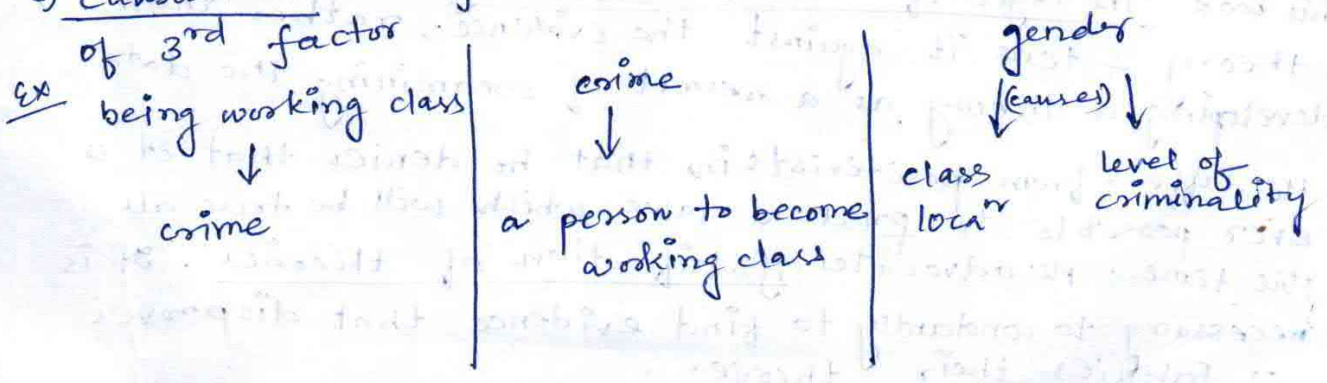 of 3rd factor
Ex being working class
↓
crime
crime
↓
a person to become
working class
gender
↓ (causes) ↓
class
locaⁿ
level of
criminality